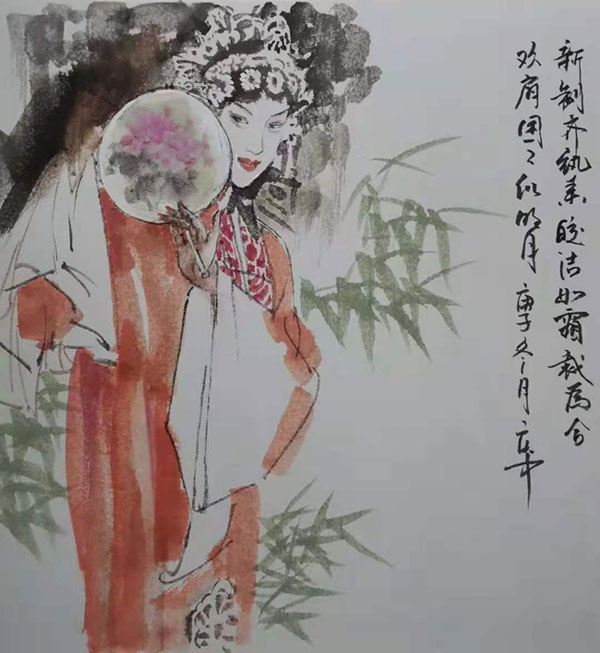 新制齐纨素皎洁如霜裁为合
欢扇团々似明月 庚子冬月